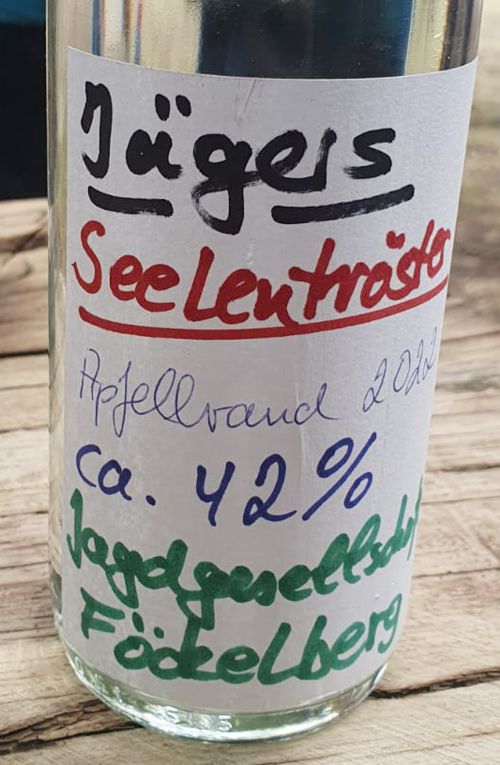 Jägers
Seelentröster
Apfelbrand 2022
ca. 42%
Jagdgesellschaft
Föckelberg